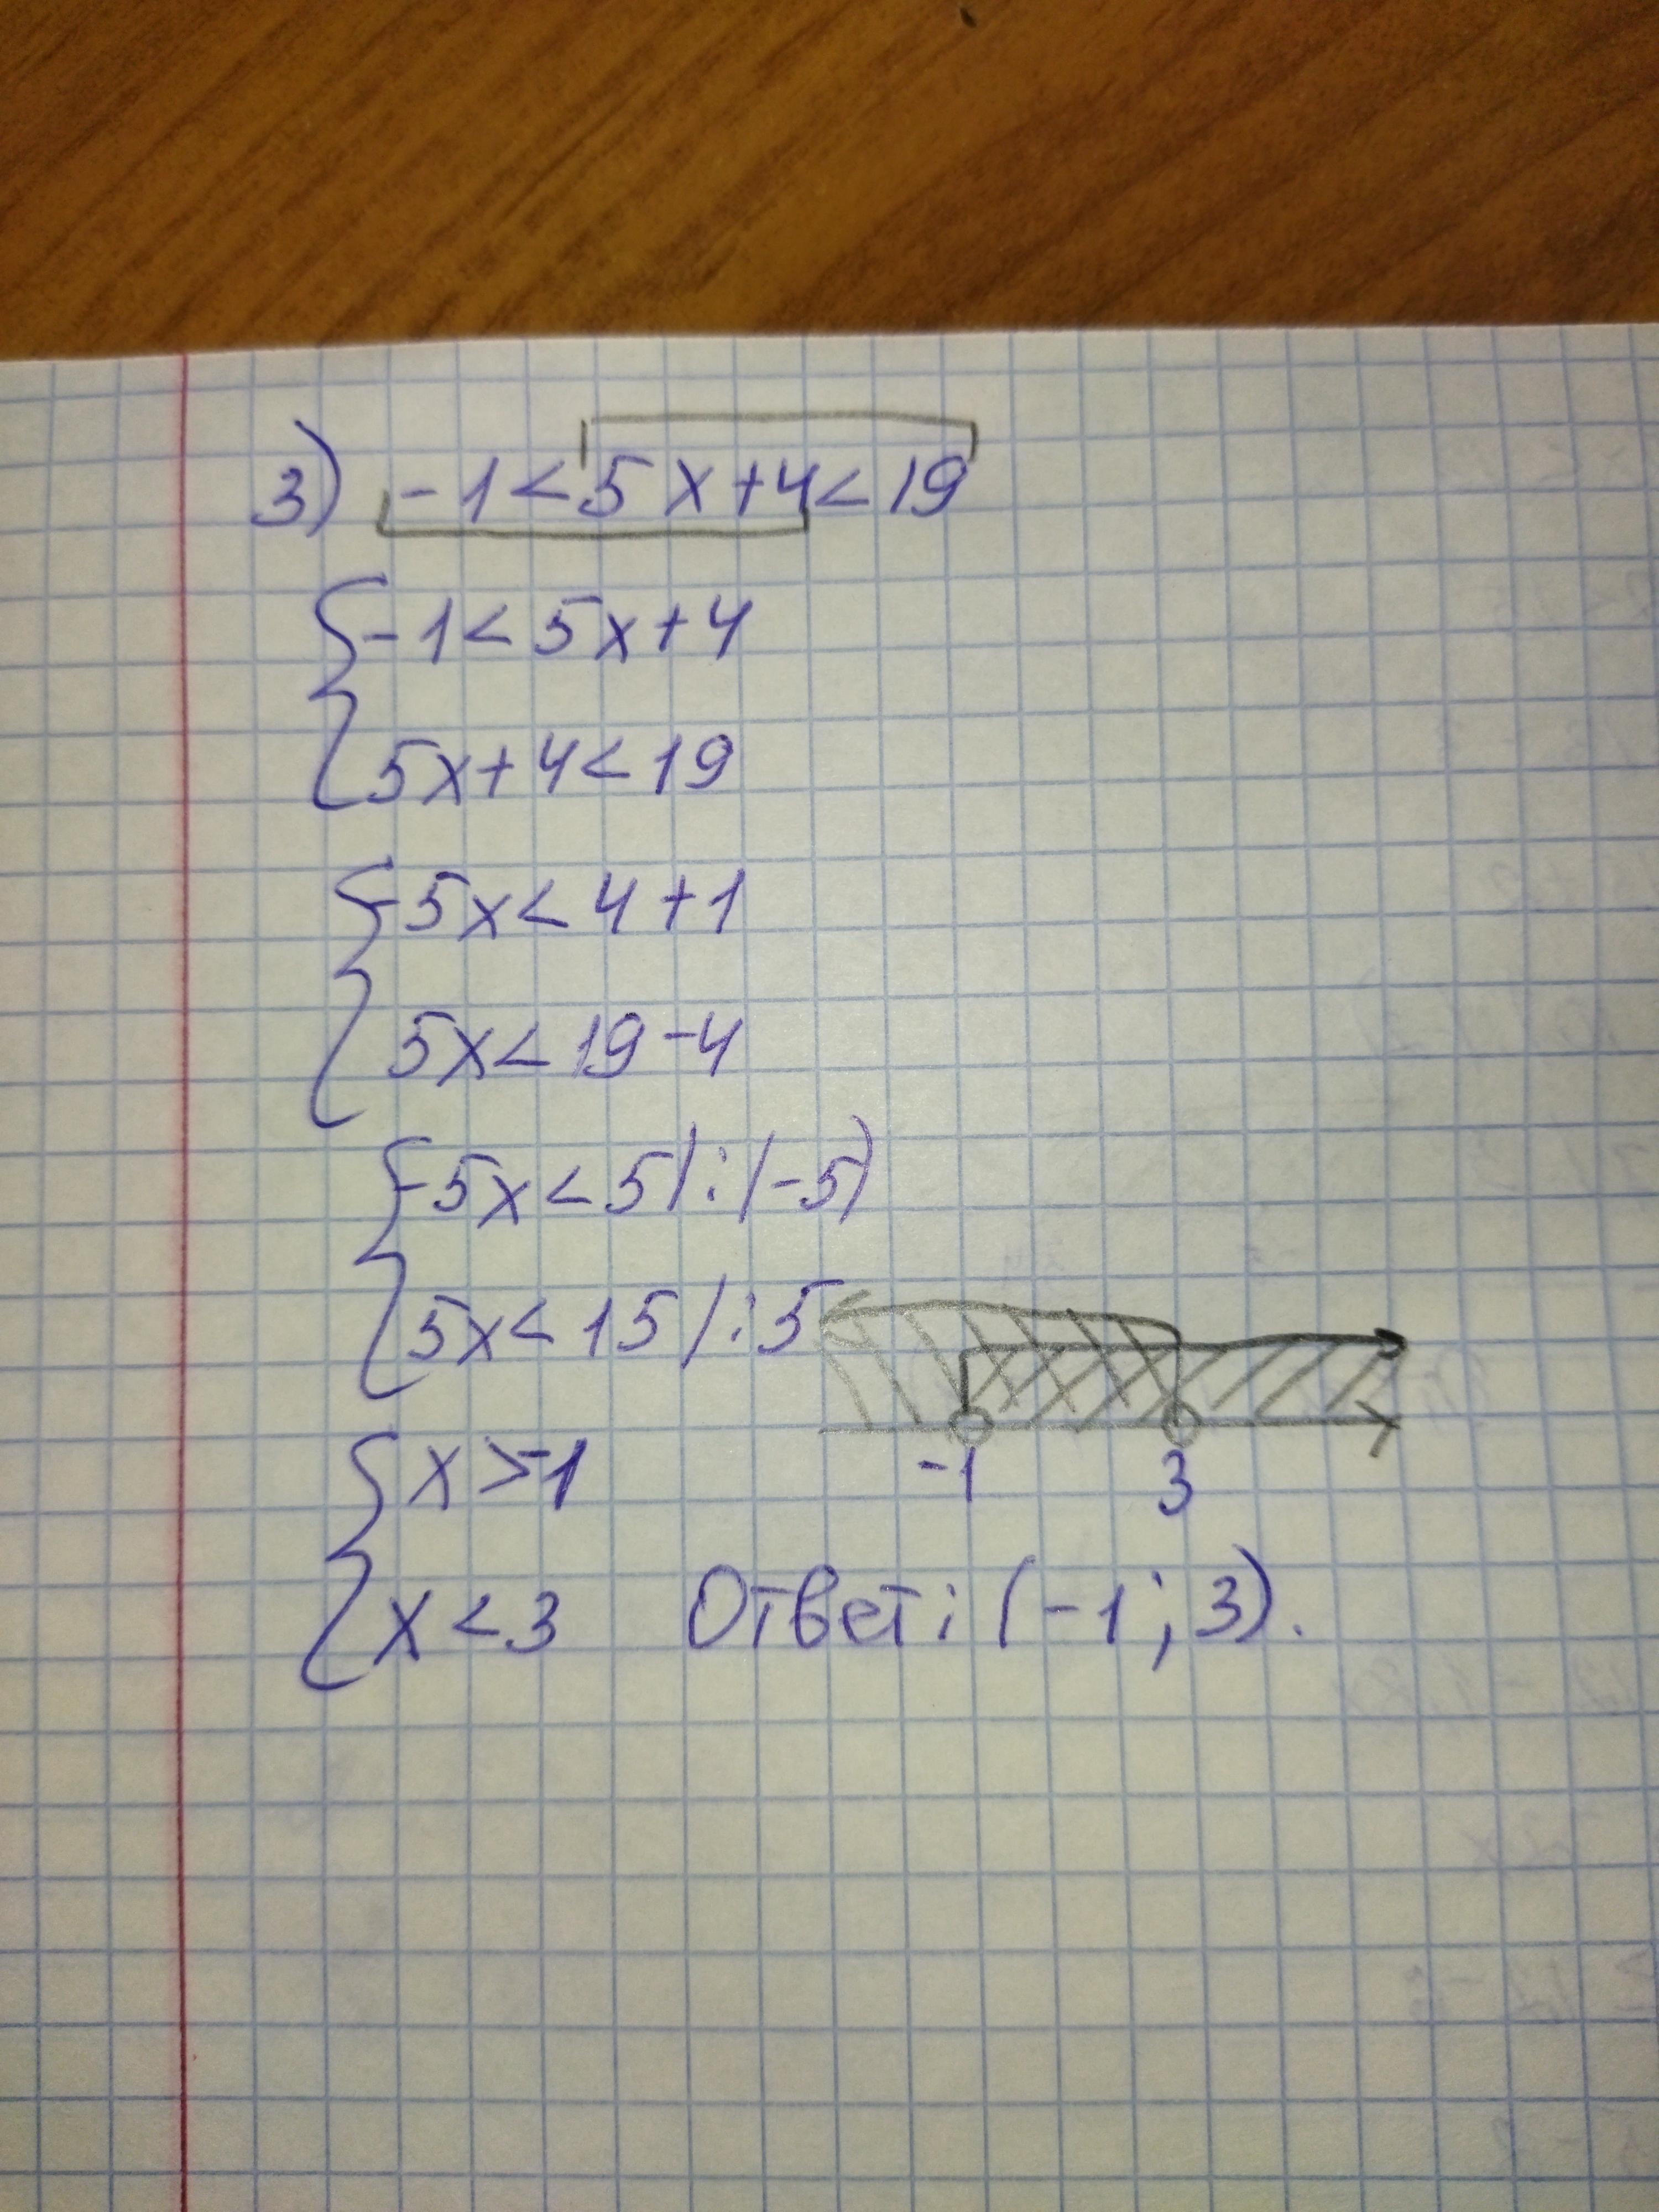 3) -1<5x+4<19
{-1<5x+4
5x+4<19
{-5x<4+1
5x<19-4
{-5x<5|:(-5)
5x<15|:5
{x>-1
-1 3
x<3 Ответ: (-1; 3).